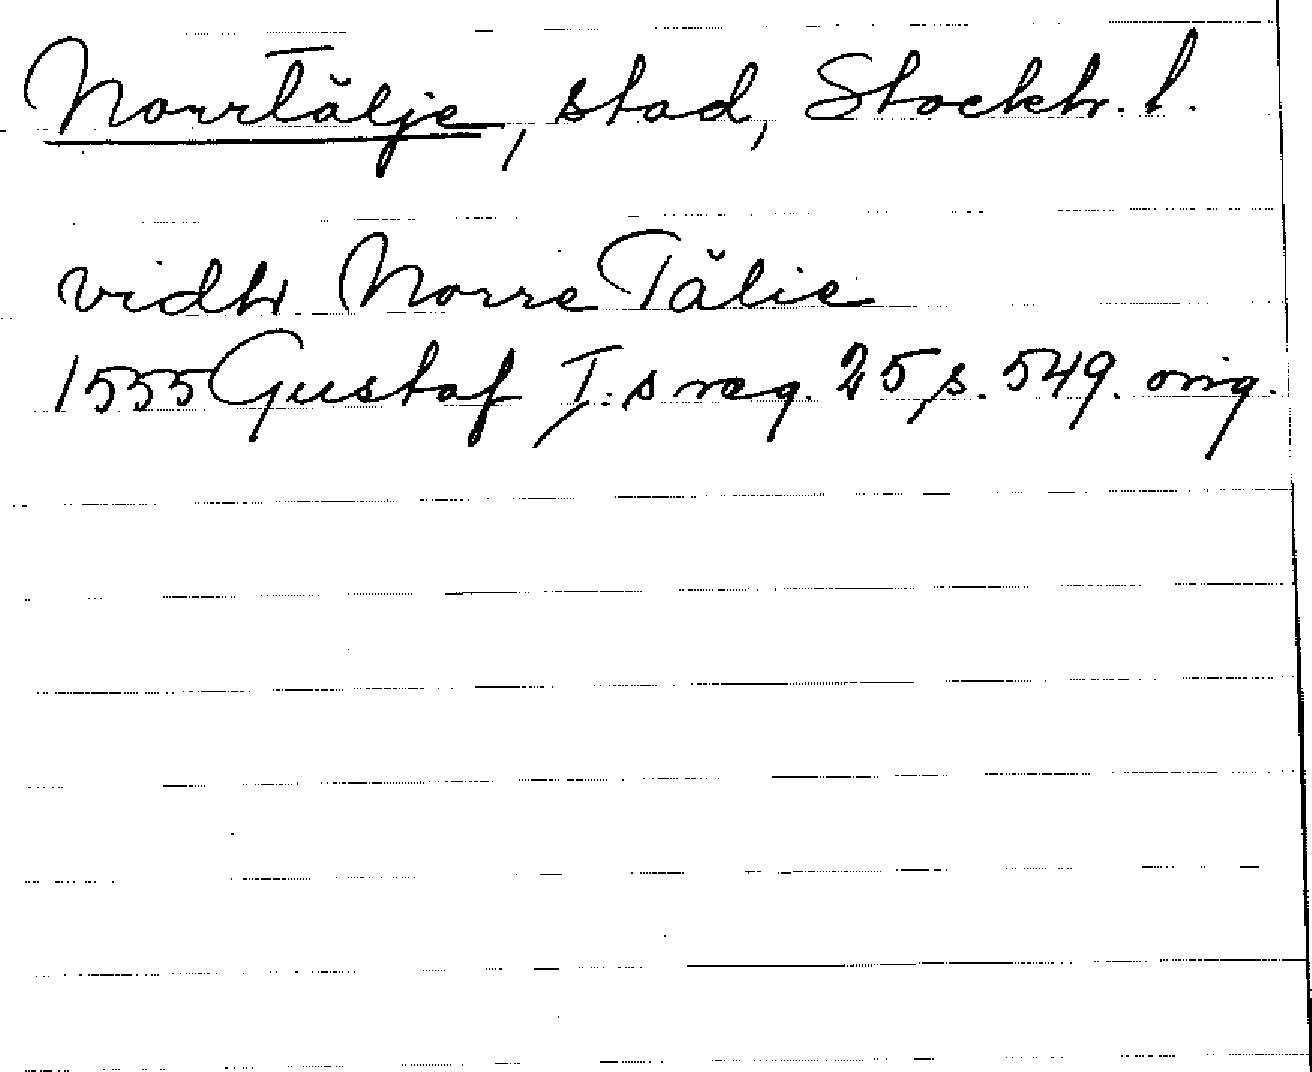 Norrtälje, stad, Stockh. l.
vidh Norre Tälie
1555 Gustaf I:s reg. 25, s. 549. orig.